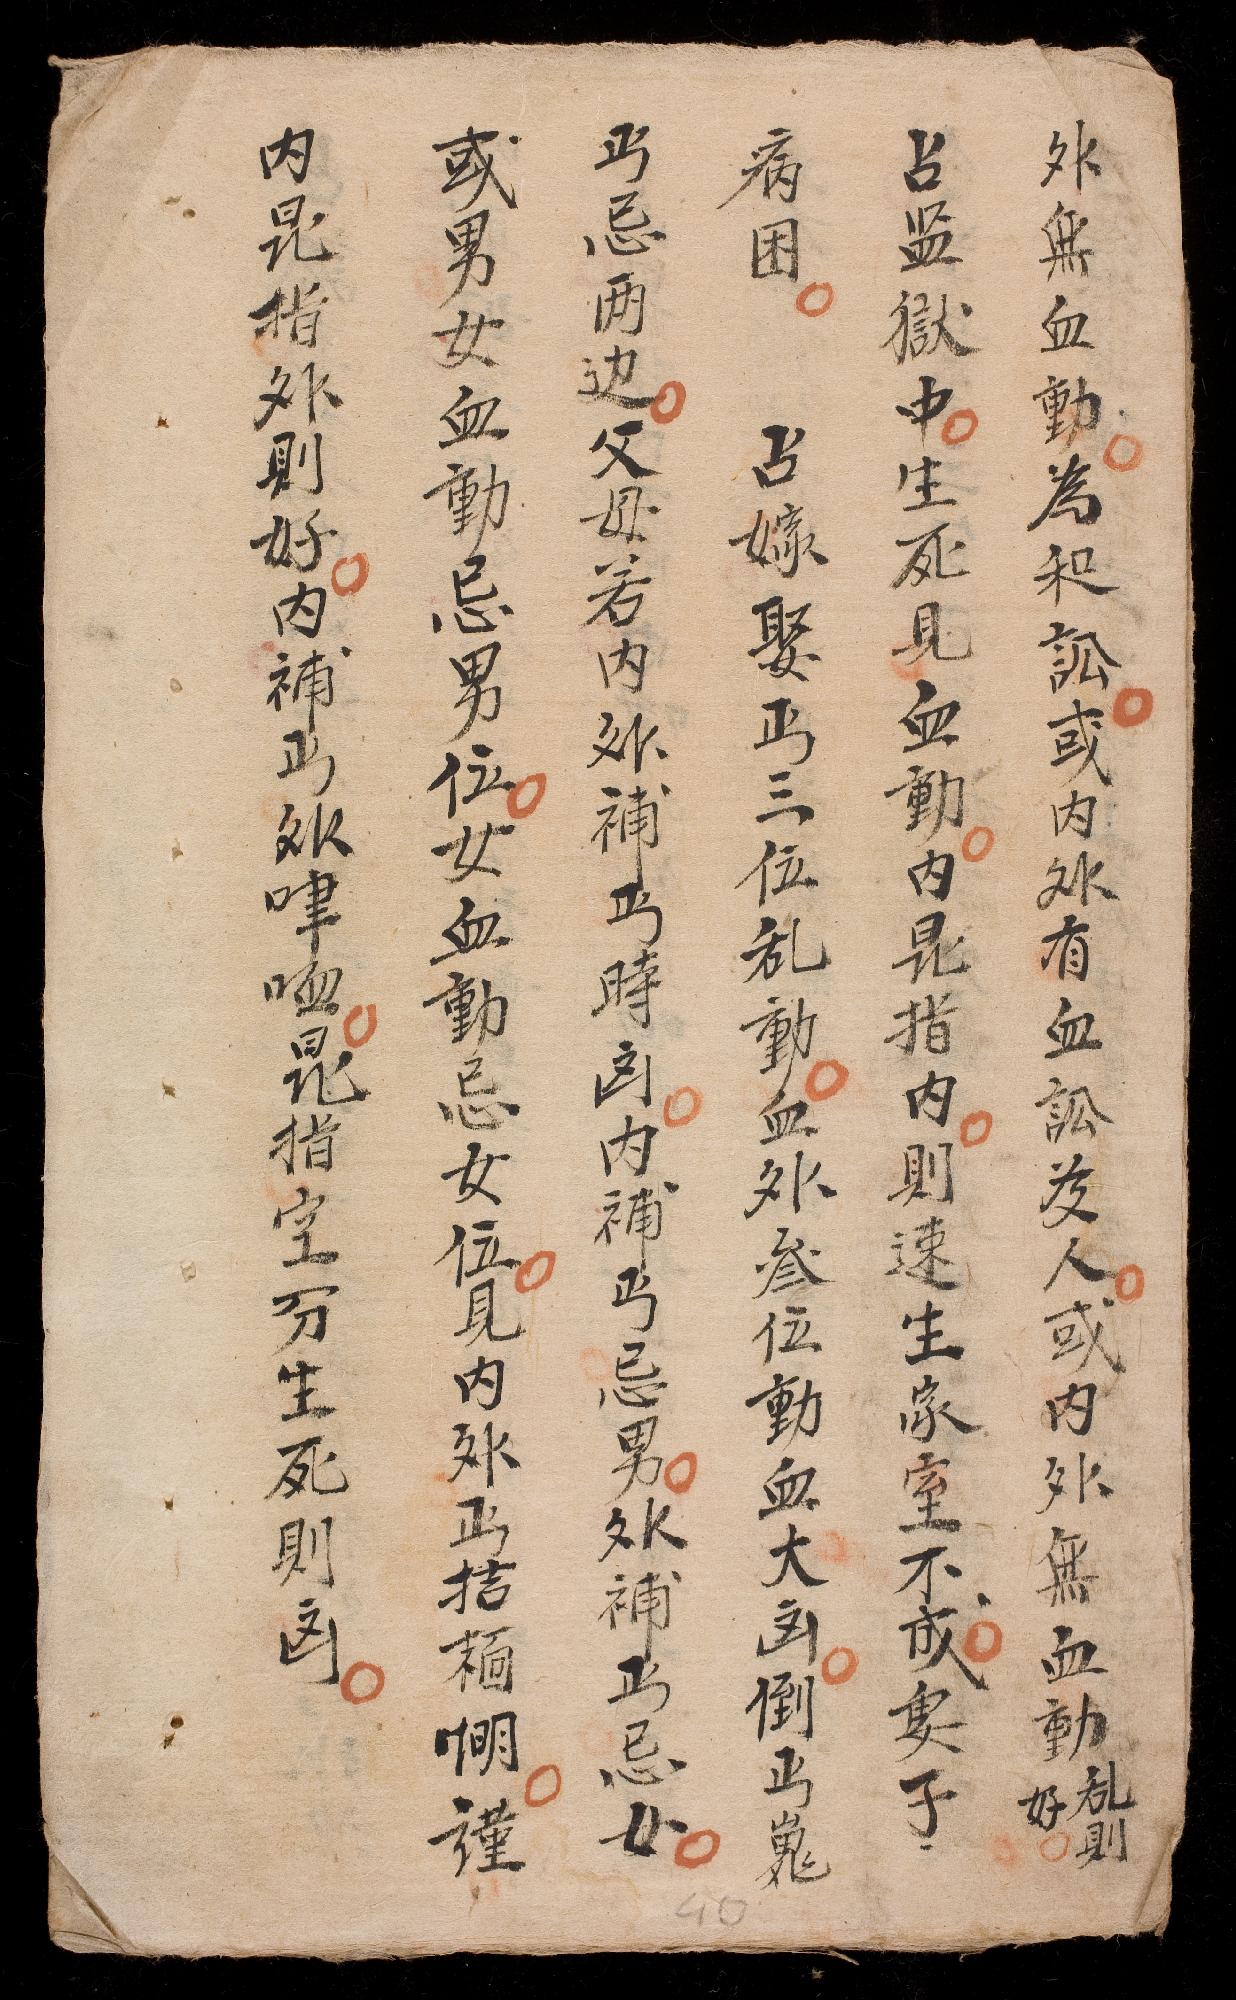 外無血動為和訟或内外有血訟发人或内外無血動乱則好
占监獄中生死見血動内昆指内則速生家室不成妻子
病困 占嫁娶丐三位乱動血外叁位動血大凶倒丐嵬
丐忌两边父母若内外補丐時凶内補丐忌男外補丐忌女
或男女血動忌男位女血動忌女位見内外丐拮𥚃㗢謹
内昆指外則好内補丐外㖀𠱋昆指空分生死則凶
40